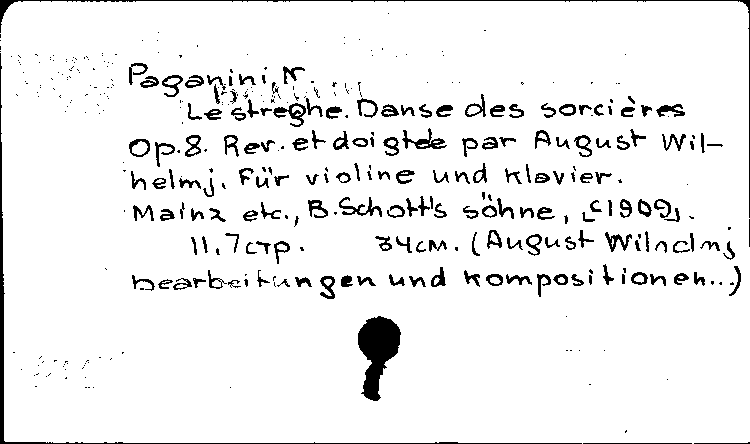 Paganini, N.
Le streghe. Danse des sorcières
Op. 8. Rev. et doigtée par August Wil-
helmj. Für violine und Klavier.
Mainz etc., B. Schott's söhne, [c1909].
11, 7 стр. 34 см. (August Wilhelmj
bearbeitungen und Kompositionen...)